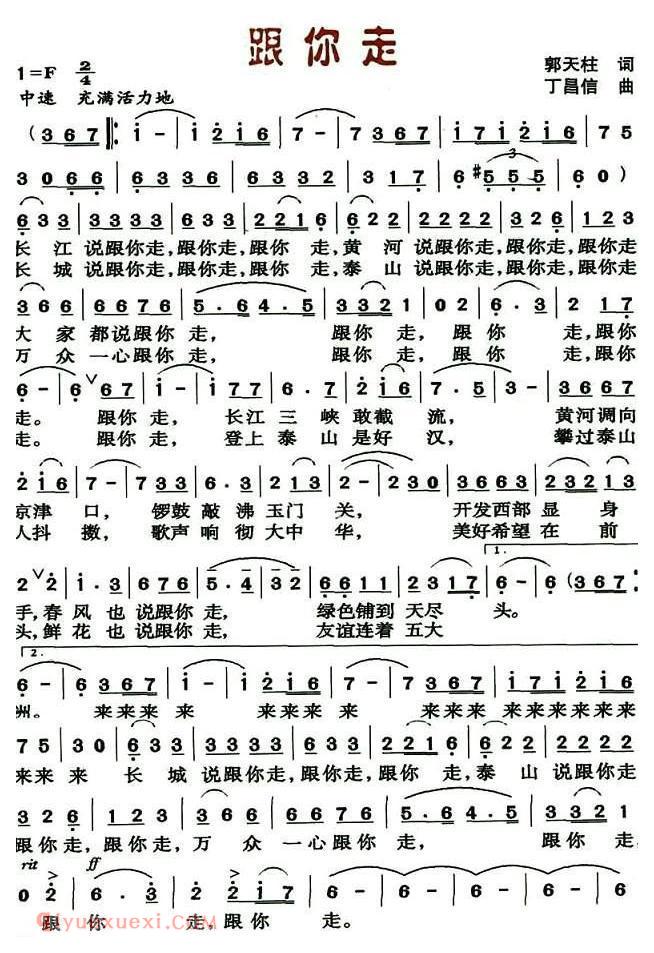 跟你走
1=F 2/4 郭天柱 词
中速 充满活力地 丁昌信 曲
( 3 6 7 ‖: i - | i 2 i 6 | 7 - | 7 3 6 7 | i 7 i 2 i 6 | 7 5
3 0 6 6 | 6 3 3 6 | 6 3 3 2 | 3 1 7 | 6 #5 5 5 | 6 0 )
6 3 3 | 3 3 3 3 | 6 3 3 | 2 2 1 6 | 6 2 2 | 2 2 2 2 | 3 2 6 | 1 2 3
长 江 说跟你走,跟你走,跟你 走,黄 河 说跟你走,跟你走,跟你走
长 城 说跟你走,跟你走,跟你 走,泰 山 说跟你走,跟你走,跟你走
3 6 6 | 6 6 7 6 | 5 . 6 4 . 5 | 3 3 2 1 | 0 2 | 6 . 3 | 2 1 7
大 家 都说跟你 走, 跟你 走, 跟 你 走,跟你
万 众 一心跟你 走, 跟你 走, 跟 你 走,跟你
6 - | 6 ∨ 6 7 | i - | i 7 7 | 6 . 7 | 2 i 6 | 7 . 5 | 3 - | 3 6 6 7
走。 跟你 走, 长江 三 峡 敢截 流, 黄河调向
走。 跟你 走, 登上 泰 山 是好 汉, 攀过泰山
2 i 6 | 7 - | 7 3 3 | 6 . 3 | 2 1 6 | 2 - | 3 6 6 3 | 2 3
京津 口, 锣鼓 敲 沸 玉门 关, 开发西部 显 身
人抖 擞, 歌声 响 彻 大中 华, 美好希望 在 前
1.
2 ∨ 2 | i . 3 | 6 7 6 | 5 . 4 | 3 2 | 6 6 1 1 | 2 3 1 7 | 6 - | 6 ( 3 6 7 :
手,春 风 也 说跟你 走, 绿色铺到 天尽 头。
头,鲜 花 也 说跟你 走, 友谊连着 五大
2.
6 - | 6 3 6 7 | i - | i 2 i 6 | 7 - | 7 3 6 7 | i 7 i 2 i 6
洲。 来来来 来 来来来 来 来来来 来来来来来
7 5 | 3 0 | 6 3 3 | 3 3 3 3 | 6 3 3 | 2 2 1 6 | 6 2 2 | 2 2 2 2
来来 来 长 城 说跟你走,跟你走,跟你 走,泰 山 说跟你走
3 2 6 | 1 2 3 | 3 6 6 | 6 6 7 6 | 5 . 6 4 . 5 | 3 3 2 1
跟你走,跟你走,万 众 一心跟你 走, 跟你 走,
rit ff
0 2 | 6 . 3 | 2 | 2 1 7 | 6 - | 6 - | 6 - | 6 - ‖
跟 你 走,跟 你 走。
yuexuexi.COM